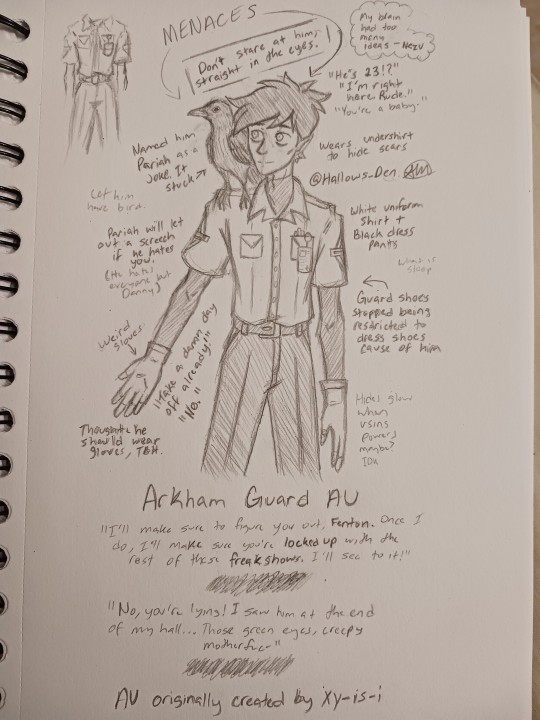 MENACES
Don't stare at him
straight in the eyes.
My brain
had too
many
ideas - Nezu
"He's 23!?"
"I'm right
here. Rude."
"You're a baby."
Named him
Pariah as a
joke. It
stuck
Wears undershirt
to hide scars
@Hallows_Den
Let him
have bird.
Pariah will let
out a screech
if he hates
you.
(He hates
everyone but
Danny)
White uniform
shirt +
Black dress
pants
what is
sleep
Guard shoes
stopped being
restricted to
dress shoes
cause of him
Weird
gloves
"Take a damn day
off already!"
"No."
Thought he
should wear
gloves, TBH.
Hides glow
when
using
powers
maybe?
IDK
Arkham Guard AU
"I'll make sure to figure you out, Fenton. Once I
do, I'll make sure you're locked up with the
rest of these freakshows. I'll see to it!"
"No, you're lying! I saw him at the end
of my hall... Those green eyes, creepy
motherfuc-"
AU originally created by xy-is-i